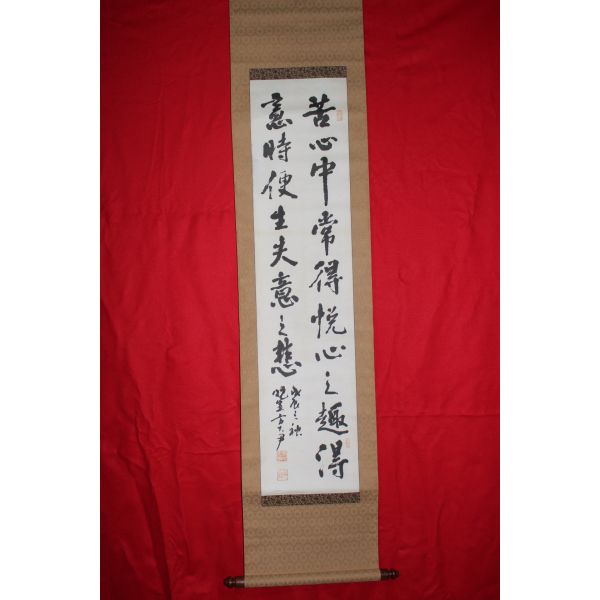 苦心中常得悦心之趣得
意時便生失意之悲
戊辰之秋